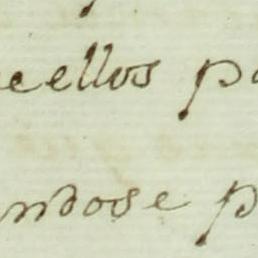 ecellos p
ndose p